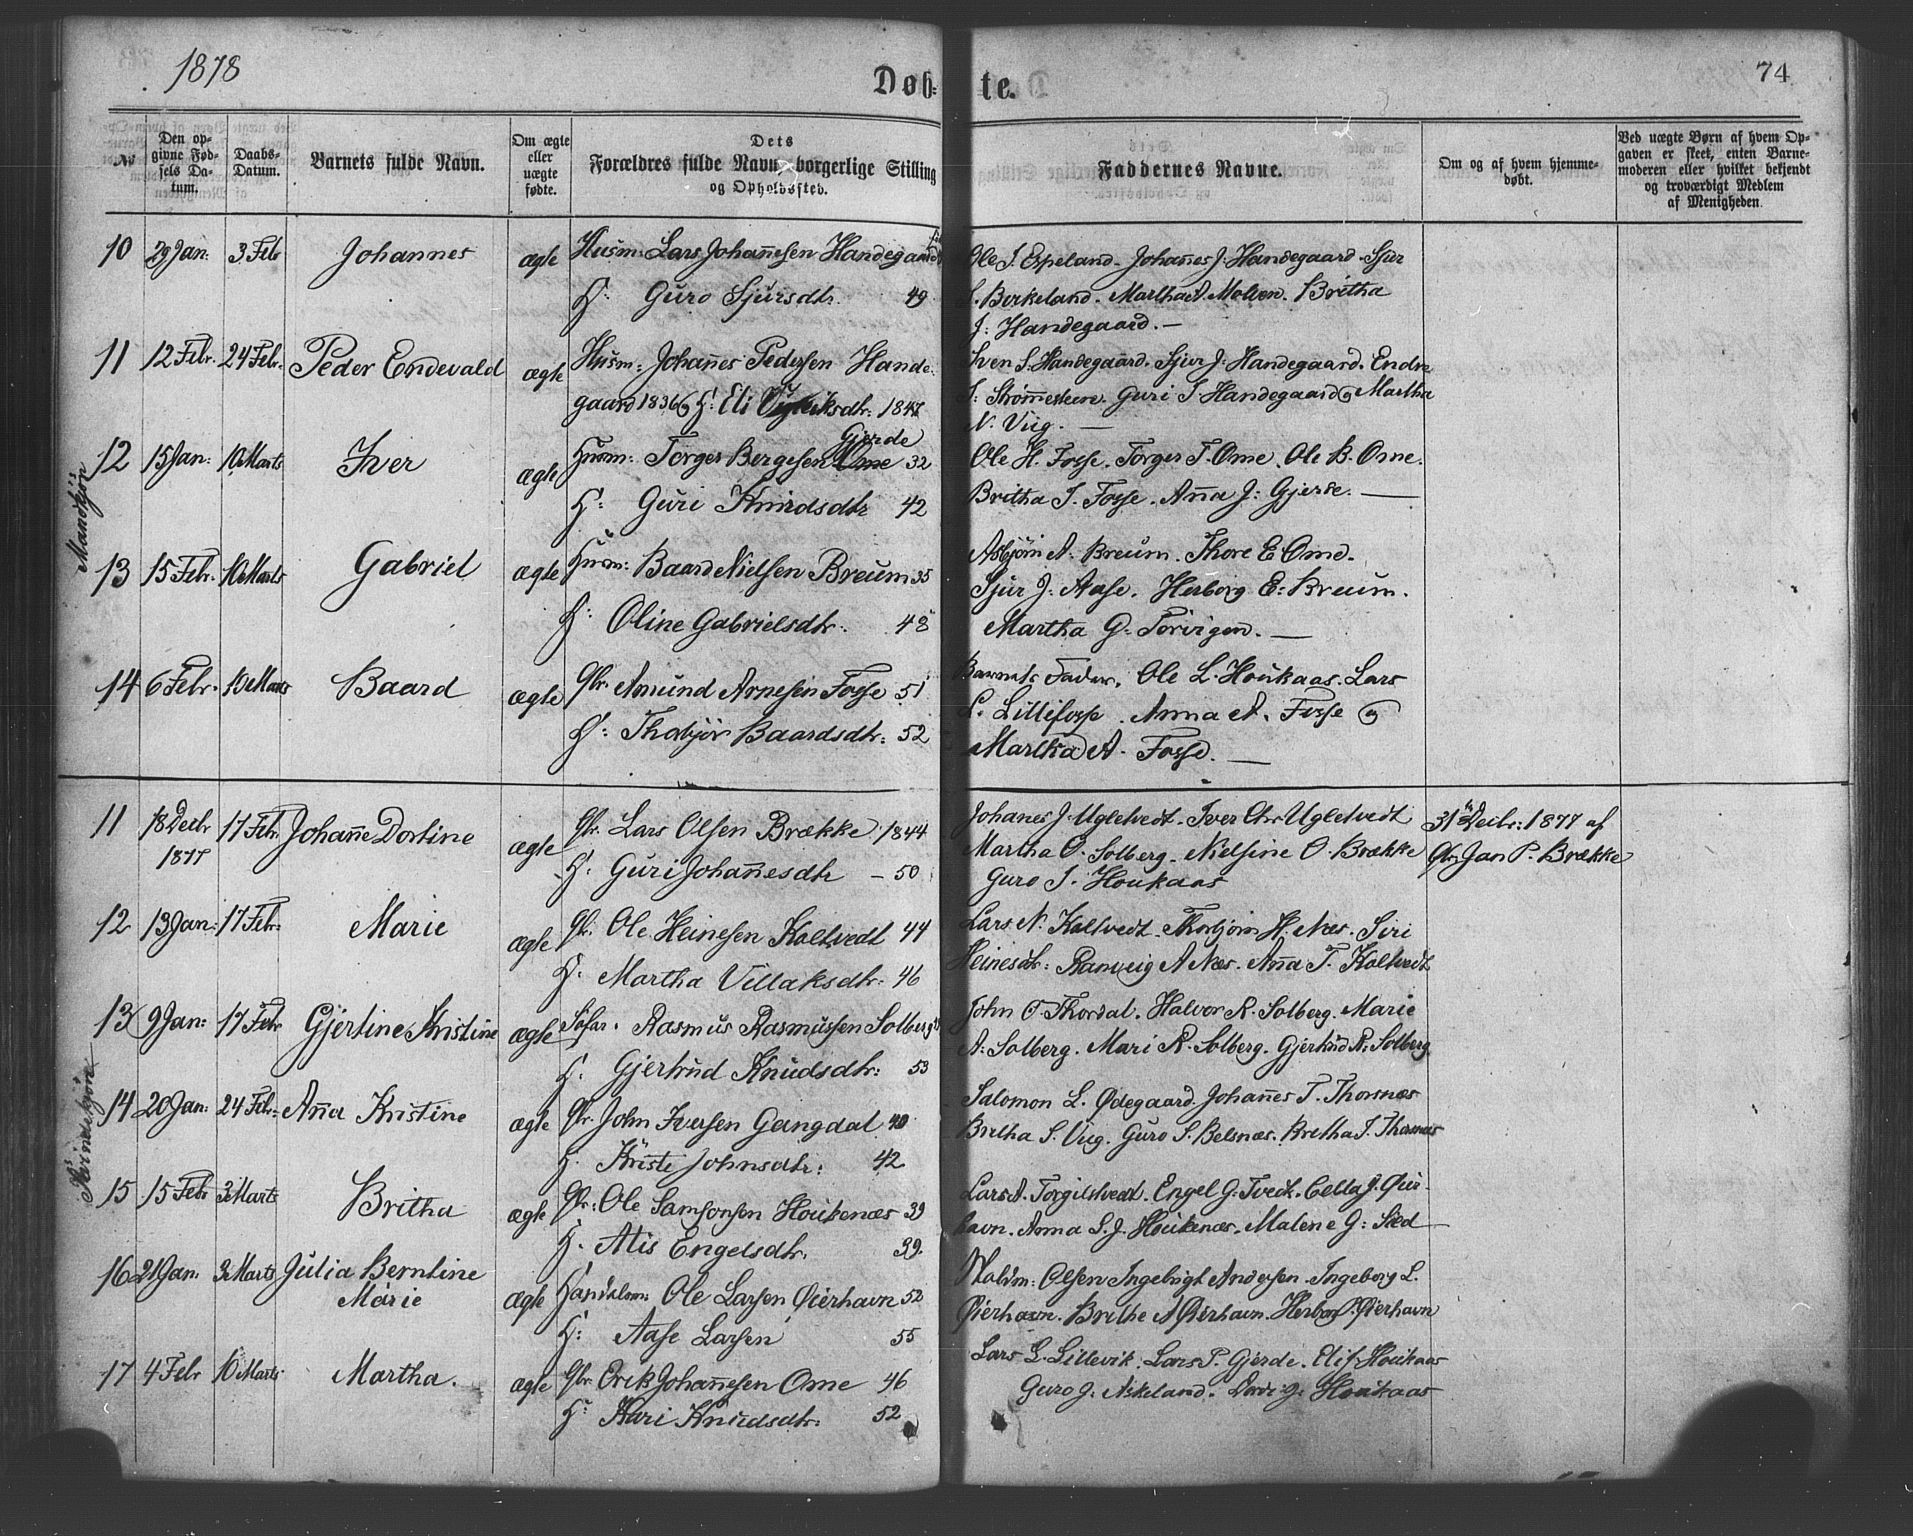 1878
Døb-
te.
74
No
Den op-
givne Fød-
sels Da-
tum.
Daabs-
Datum.
Barnets fulde Navn.
Om ægte
eller
uægte
fødte.
Dets
Forældres fulde Navn, borgerlige Stilling
og Opholdssted.
Faddernes Navne.
Om og af hvem hjemme-
døbt.
Ved uægte Børn af hvem Op-
gaven er skeet, enten Barne-
moderen eller hvilket bekjendt
og troværdigt Medlem
af Menigheden.
Mandkjön
10 29 Jan: 3 Febr Johannes ægte Husm: Lars Johannesen Handegaard
H: Guro Sjursdtr. 49
Ole S. Espeland. Johannes J. Handegaard. Sjur
S. Birkeland. Martha A. Molven. Britha
J: Handegaard. —
11 12 Febr. 24 Febr. Peder Endevald ægte Husm: Johannes Pedersen Hande-
gaard 1836 og H: Eli 1847
Sven S. Handegaard. Sjur J. Handegaard. Endre
S: Strømmesteen. Guri S Handegaard og Martha
N. Viig. —
12 15 Jan: 10 Marts Iver ægte Husm: Torger Bergesen Ome Gjerde 32
H: Guri Knudsdtr 42
Ole H. Fosse. Torger T. Ome. Ole B. Ome.
Britha I. Fosse. Anna J: Gjerde. —
13 15 Febr. 10 Marts Gabriel ægte Husm: Baard Nielsen Breum 35
H: Oline Gabrielsdtr. 48
Asbjörn A. Breum. Thore E Ome.
Sjur J. Aase. Herborg E: Breum.
Martha G. —
14 6 Febr. 10 Marts Baard ægte Gbr. Amund Arnesen Fosse 51
H: Thobjör Baardsdtr. 52
Barnets Fader. Ole L. Houkaas. Lars
L. . Anna A. Fosse og
Martha A. Fosse. —
Kvindekjön
11 18 Decbr 1877 17 Febr. Johanne Dortine ægte Gbr. Lars Olsen Brække 1844
H. Guri Johannesdtr — 50
Johanes J. Ugletvedt. Iver Chr Ugletvedt
Martha O. Solberg. Nielsine O. Brække
Guro I. Houkaas
31te Decbr: 1877 af
Gbr Jan P. Brække
12 13 Jan: 17 Febr. Marie ægte Gbr. Ole Heinesen Koltvedt 44
H. Martha Villaksdtr: 46
Lars N. Koltvedt. Thorbjörn H. Næs. Siri
Heinesdtr: Ranveig A Næs. Anna T. Koltvedt
13 9 Jan: 17 Febr Gjertine Kristine ægte Søfar. Rasmus Rasmussen Solberg
H. Gjertrud Knudsdtr: 53
John O. Thorsdal. Halvor R. Solberg. Marie
A. Solberg. Mari R. Solberg. Gjertrud R. Solberg
14 20 Jan: 24 Febr. Anna Kristine ægte Gbr. John Iversen Gangdal 40
H. Kristi Johnsdtr: 42
Salomon L. Ødegaard. Johannes T. Thorsnæs
Britha S. Viig. Guro S. Belsnæs. Britha T. Thorsnæs
15 15 Febr 3 Marts Britha ægte Gbr: Ole Samsonsen Houkenæs 39
H. Alis Engelsdtr. 39.
Lars A. Torgilstvedt. Engel G. Tvedt. Cella J. Øier-
havn. Anna S. J. Houkenæs. Malene G:
16 21 Jan: 3 Marts Julia Berntine
Marie ægte Handelsm: Ole Larsen Øierhavn 52
H: Aase Larsen 55
Olsen Ingebrigt Andersen. Ingeborg L.
Øierhavn. Brithe A Øierhavn. Herborg P. Øierhavn
17 4 Febr 10 Marts Martha. ægte Gbr. Erik Johannesen Ome 46
H: Kari Knudsdtr: 52
Lars L. Lillevik. Lars P. Gjerde. Houkaas
Guro J. Askeland. Houkaas